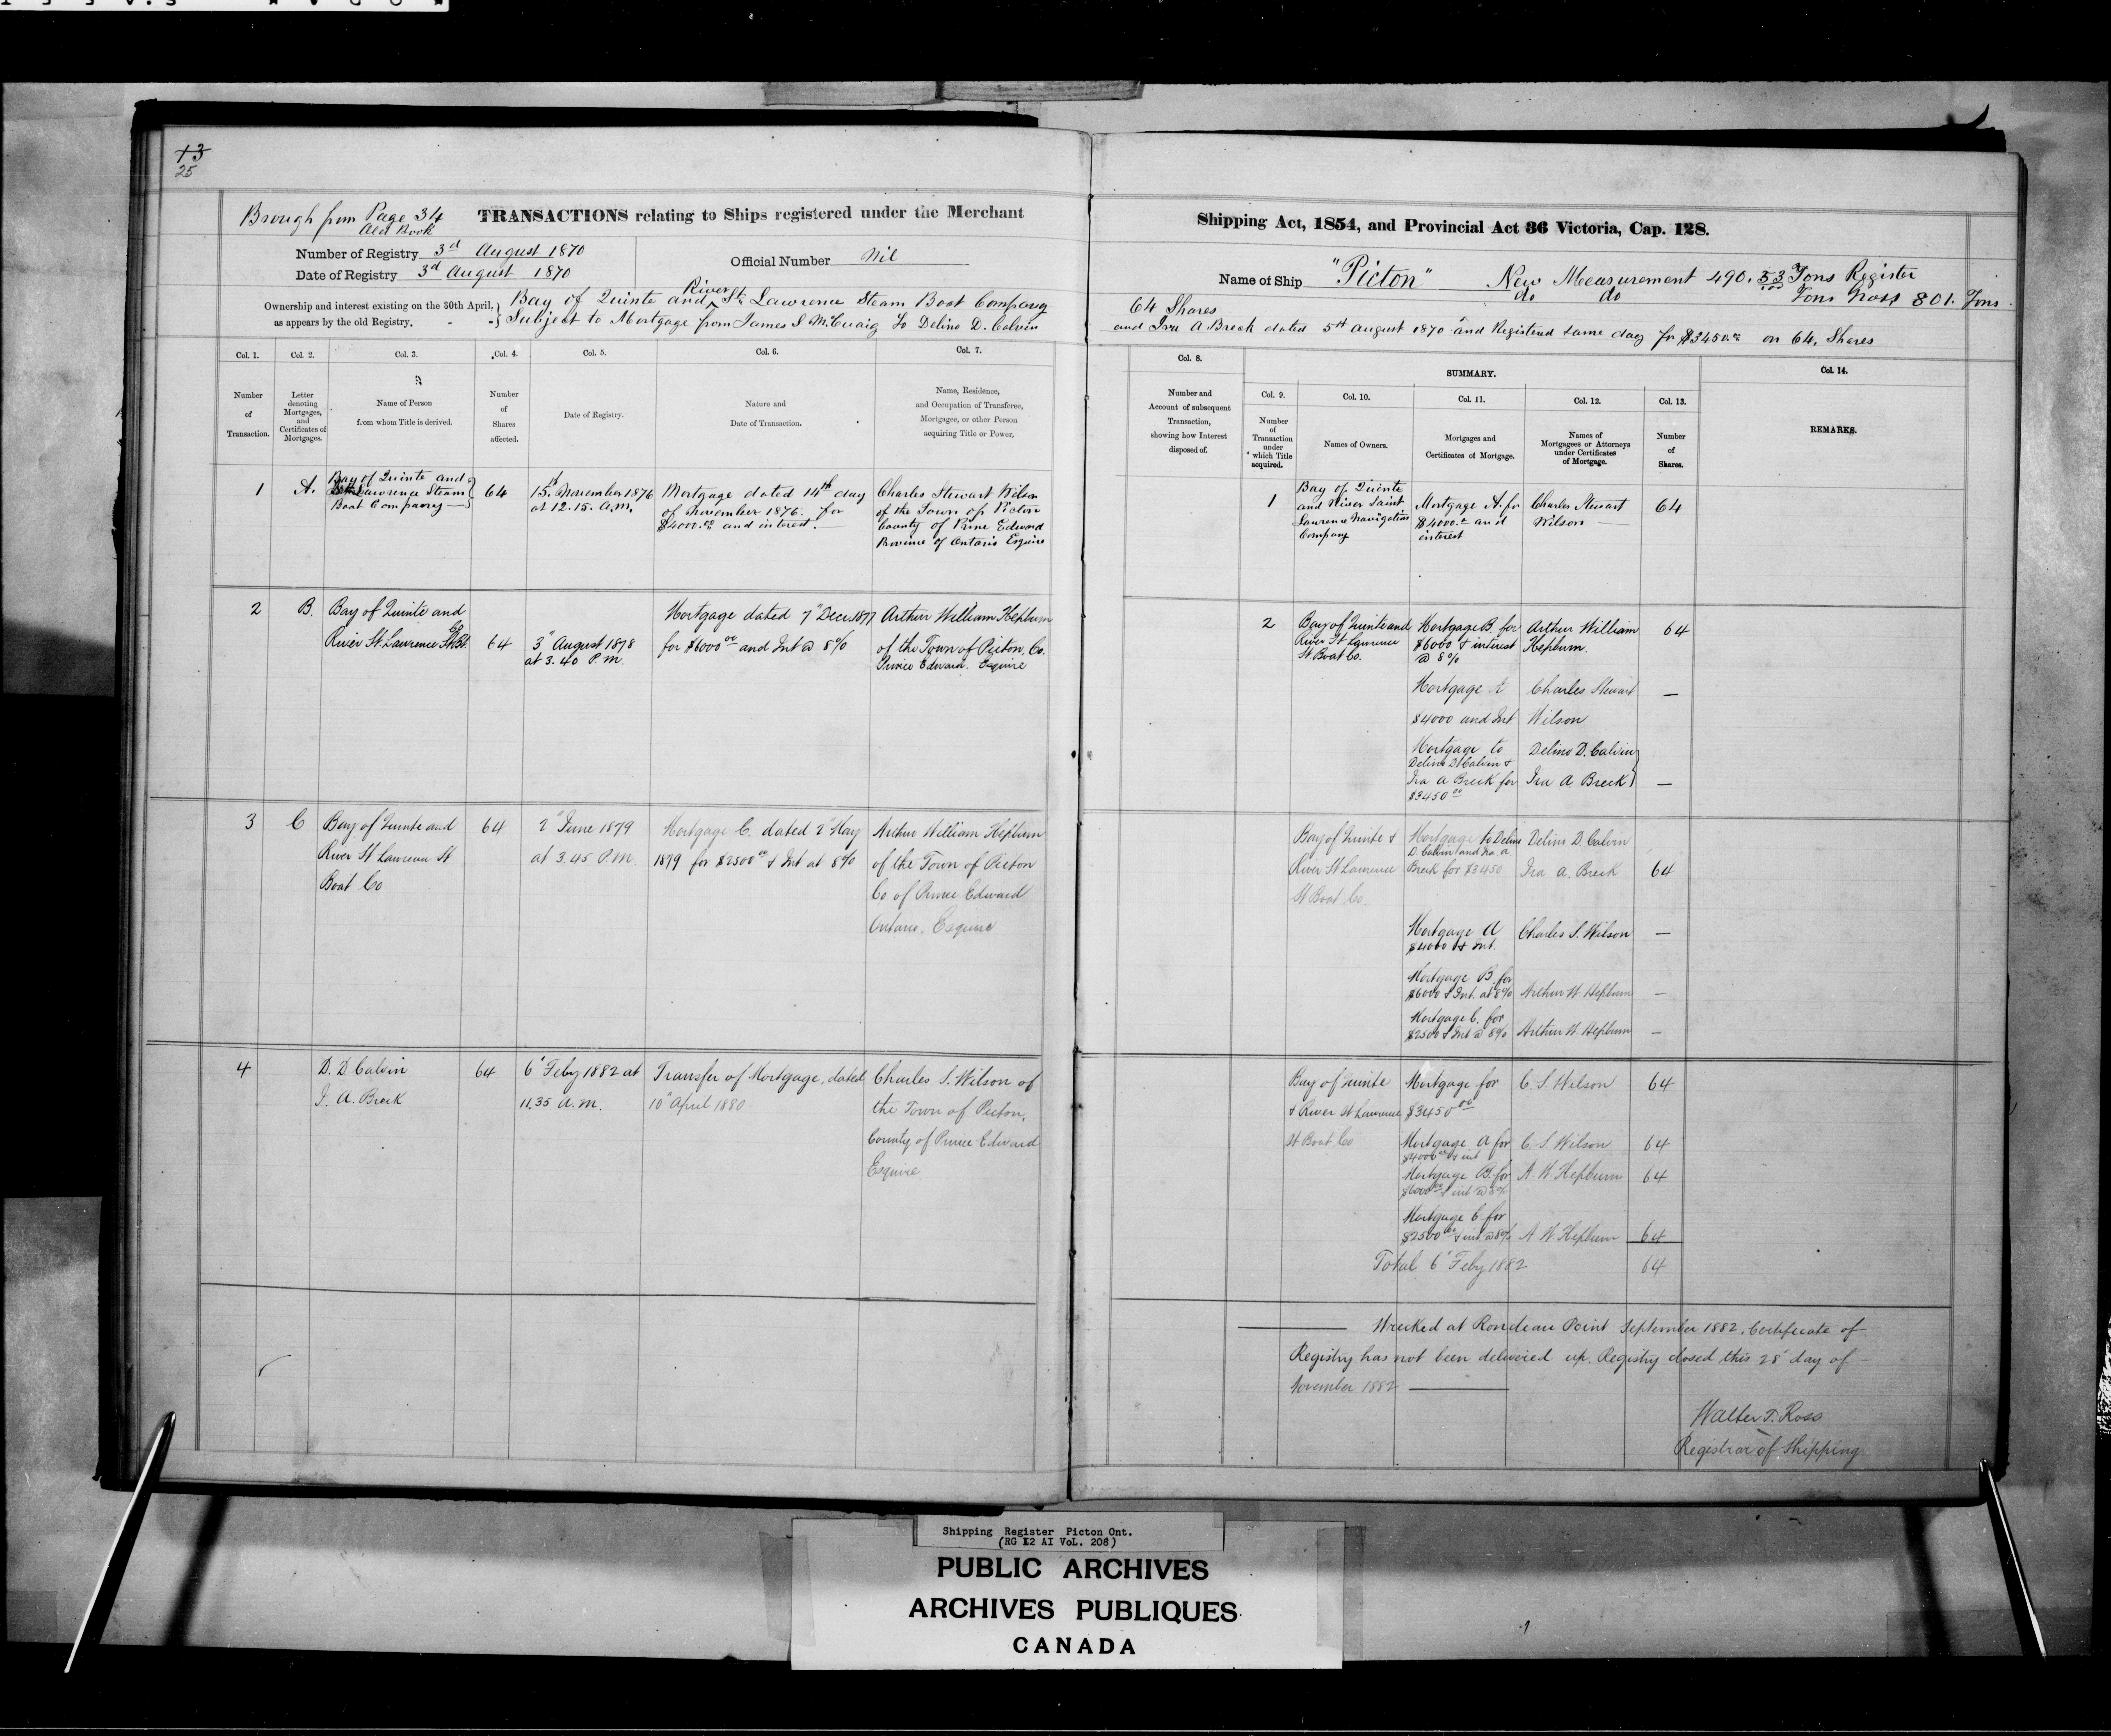 13
25
Brough from Page 34
Old Book
TRANSACTIONS relating to Ships registered under the Merchant
Number of Registry 3d August 1870
Official Number Nil
Date of Registry 3d August 1870
Ownership and interest existing on the 30th April, as appears by the old Registry.
Bay of Quinte and River St. Lawrence Steam Boat Company
Subject to Mortgage from James S. McCuaig to Delino D. Calvin
Col. 1.
Col. 2.
Col. 3.
Col. 4.
Col. 5.
Col. 6.
Col. 7.
Number of Transaction.
Letter denoting Mortgages, and Certificates of Mortgages.
Name of Person from whom Title is derived.
Number of Shares affected.
Date of Registry.
Nature and Date of Transaction.
Name, Residence, and Occupation of Transferee, Mortgagee, or other Person acquiring Title or Power.
1
A.
Bay of Quinte and
St Lawrence Steam
Boat Company
64
15th November 1876
at 12.15. A.M.
Mortgage dated 14th day
of November 1876. for
$4000.00 and interest.
Charles Stewart Wilson
of the Town of Picton
County of Prince Edward
Province of Ontario Esquire
2
B.
Bay of Quinte and
River St. Lawrence St Bt Co
64
3" August 1878
at 3.40 P.M.
Mortgage dated 7" Decr. 1877
for $6000 00 and Int @ 8%
Arthur William Hepburn
of the Town of Picton, Co.
Prince Edward. Esquire
3
C
Bay of Quinte and
River St Lawrence St
Boat Co
64
2" June 1879
at 3.45 P.M.
Mortgage C. dated 2" May
1879 for $2500 00 & Int at 8%
Arthur William Hepburn
of the Town of Picton
Co of Prince Edward
Ontario. Esquire
4
D. D Calvin
I. A. Breck
64
6" Feby 1882 at
11.35 a.m.
Transfer of Mortgage, dated
10" April 1880
Charles S. Wilson of
the Town of Picton,
County of Prince Edward
Esquire
Shipping Act, 1854, and Provincial Act 36 Victoria, Cap. 128.
Name of Ship "Picton" New Measurement 490.53 Tons Register
do do Tons Gross 801. Tons
64 Shares
and Ira A Breck dated 5th August 1870 and Registered same day for $3450.00 on 64. Shares
Col. 8.
SUMMARY.
Col. 14.
Col. 9.
Col. 10.
Col. 11.
Col. 12.
Col. 13.
Number and Account of subsequent Transaction, showing how Interest disposed of.
Number of Transaction under which Title acquired.
Names of Owners.
Mortgages and Certificates of Mortgage.
Names of Mortgagees or Attorneys under Certificates of Mortgage.
Number of Shares.
REMARKS.
1
Bay of Quinte
and River Saint
Lawrence Navigation
Company
Mortgage A. for
$4000. and
interest
Charles Stewart
Wilson
64
2
Bay of Quinte and
River St Lawrence
St Boat Co.
Mortgage B. for
$6000 & interest
@ 8%
Arthur William
Hepburn.
64
Mortgage A
$4000 and Int
Charles Stewart
Wilson
—
Mortgage to
Delino D Calvin &
Ira A Breck for
$3450 00
Delino D. Calvin
Ira A. Breck
—
Bay of Quinte &
River St Lawrence
St Boat Co.
Mortgage to Delino
D. Calvin and Ira A.
Breck for $3450
Delino D. Calvin
Ira A. Breck
64
Mortgage A
$4000 & Int.
Charles S. Wilson
—
Mortgage B. for
$6000 & Int. at 8%
Arthur W. Hepburn
—
Mortgage C. for
$2500 & Int @ 8%
Arthur W. Hepburn
—
Bay of Quinte
& River St Lawrence
St Boat Co
Mortgage for
$3450 00
C. S. Wilson
64
Mortgage A for
$4000 00 & int
C. S. Wilson
64
Mortgage B. for
$6000 00 & int @ 8%
A. W. Hepburn
64
Mortgage C for
$2500 00 & int @ 8%
A W. Hepburn
64
Total 6" Feby 1882
64
Wrecked at Rondeau Point September 1882. Certificate of
Registry has not been delivered up. Registry closed this 28" day of
November 1882
Walter T. Ross
Registrar of Shipping
Shipping Register Picton Ont.
(RG 12 A1 Vol. 208)
PUBLIC ARCHIVES
ARCHIVES PUBLIQUES
CANADA